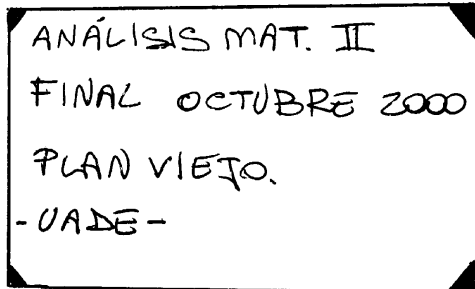 ANÁLISIS MAT. II
FINAL OCTUBRE 2000
PLAN VIEJO.
-UADE-